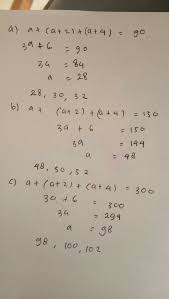 a) a + (a+2) + (a+4) = 90
3a + 6 = 90
3a = 84
a = 28
28, 30, 32
b) a + (a+2) + (a+4) = 150
3a + 6 = 150
3a = 144
a = 48
48, 50, 52
c) a + (a+2) + (a+4) = 300
3a + 6 = 300
3a = 294
a = 98
98, 100, 102